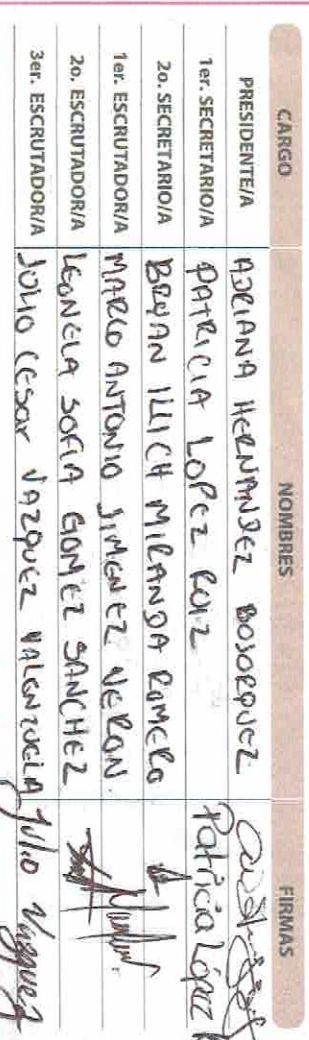 CARGO NOMBRES FIRMAS
PRESIDENTE/A ADRIANA HERNANDEZ BOJORQUEZ
1er. SECRETARIO/A PATRICIA LOPEZ RUIZ Patricia López
2o. SECRETARIO/A BRYAN ILLICH MIRANDA ROMERO
1er. ESCRUTADOR/A MARCO ANTONIO JIMENEZ VERON.
2o. ESCRUTADOR/A LEONELA SOFIA GOMEZ SANCHEZ
3er. ESCRUTADOR/A JULIO CESAR VAZQUEZ VALENZUELA Julio Vazquez